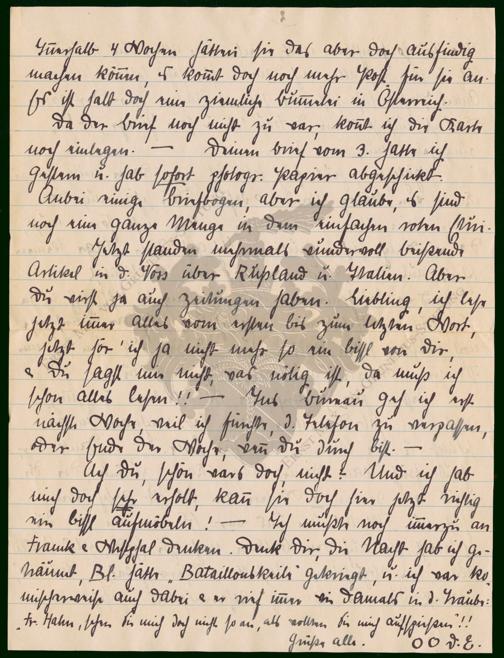 Innerhalb 4 Wochen hätten sie das aber doch ausfindig
machen können, es kom̅t doch noch mehr Post für sie an.
Es ist halt doch eine ziemliche bum̅elei in Österreich.
Da der brief noch nicht zu war, kon̅t ich die Karte
noch einlegen. — Deinen brief vom 3. hatte ich
gestern u. hab sofort photogr. papier abgeschickt.
Anbei einige briefbogen, aber ich glaube, es sind
noch eine ganze Menge in dem einfachen roten
Jetzt standen mehrmals wundervoll beißende
Artikel in d. Voss über Rußland u. Italien. Aber
Du wirst ja auch zeitungen haben. Liebling, ich lese
jetzt im̅er alles vom ersten bis zum letzten Wort,
jetzt hör' ich ja nicht mehr so ein bissl von dir,
& Du sagst mir nicht, was nötig ist, da muß ich
schon alles lesen!! — Ins bureau geh ich erst
nächste Woche, weil ich fürchte, d. Telefon zu verpassen,
oder Ende der Woche, wen̅ du durch bist. —
Ach du, schön wars doch, nicht? Und ich hab
mich doch sehr erholt, kan̅ sie doch hier jetzt richtig
ein bissl aufmöbeln! — Ich mußte noch im̅erzu an
Frank & Westphal denken. Denk dir, die Nacht hab ich ge-
träumt, Bl. hätte "Bataillonskeile" gekriegt, u. ich war ko-
mischerweise auch dabei & er rief im̅er wie damals in d. Traube:
"Fr. Hahn, sehen sie mich doch nicht so an, als wollten sie mich aufspießen"!!
Grüße alle. OO d. E.